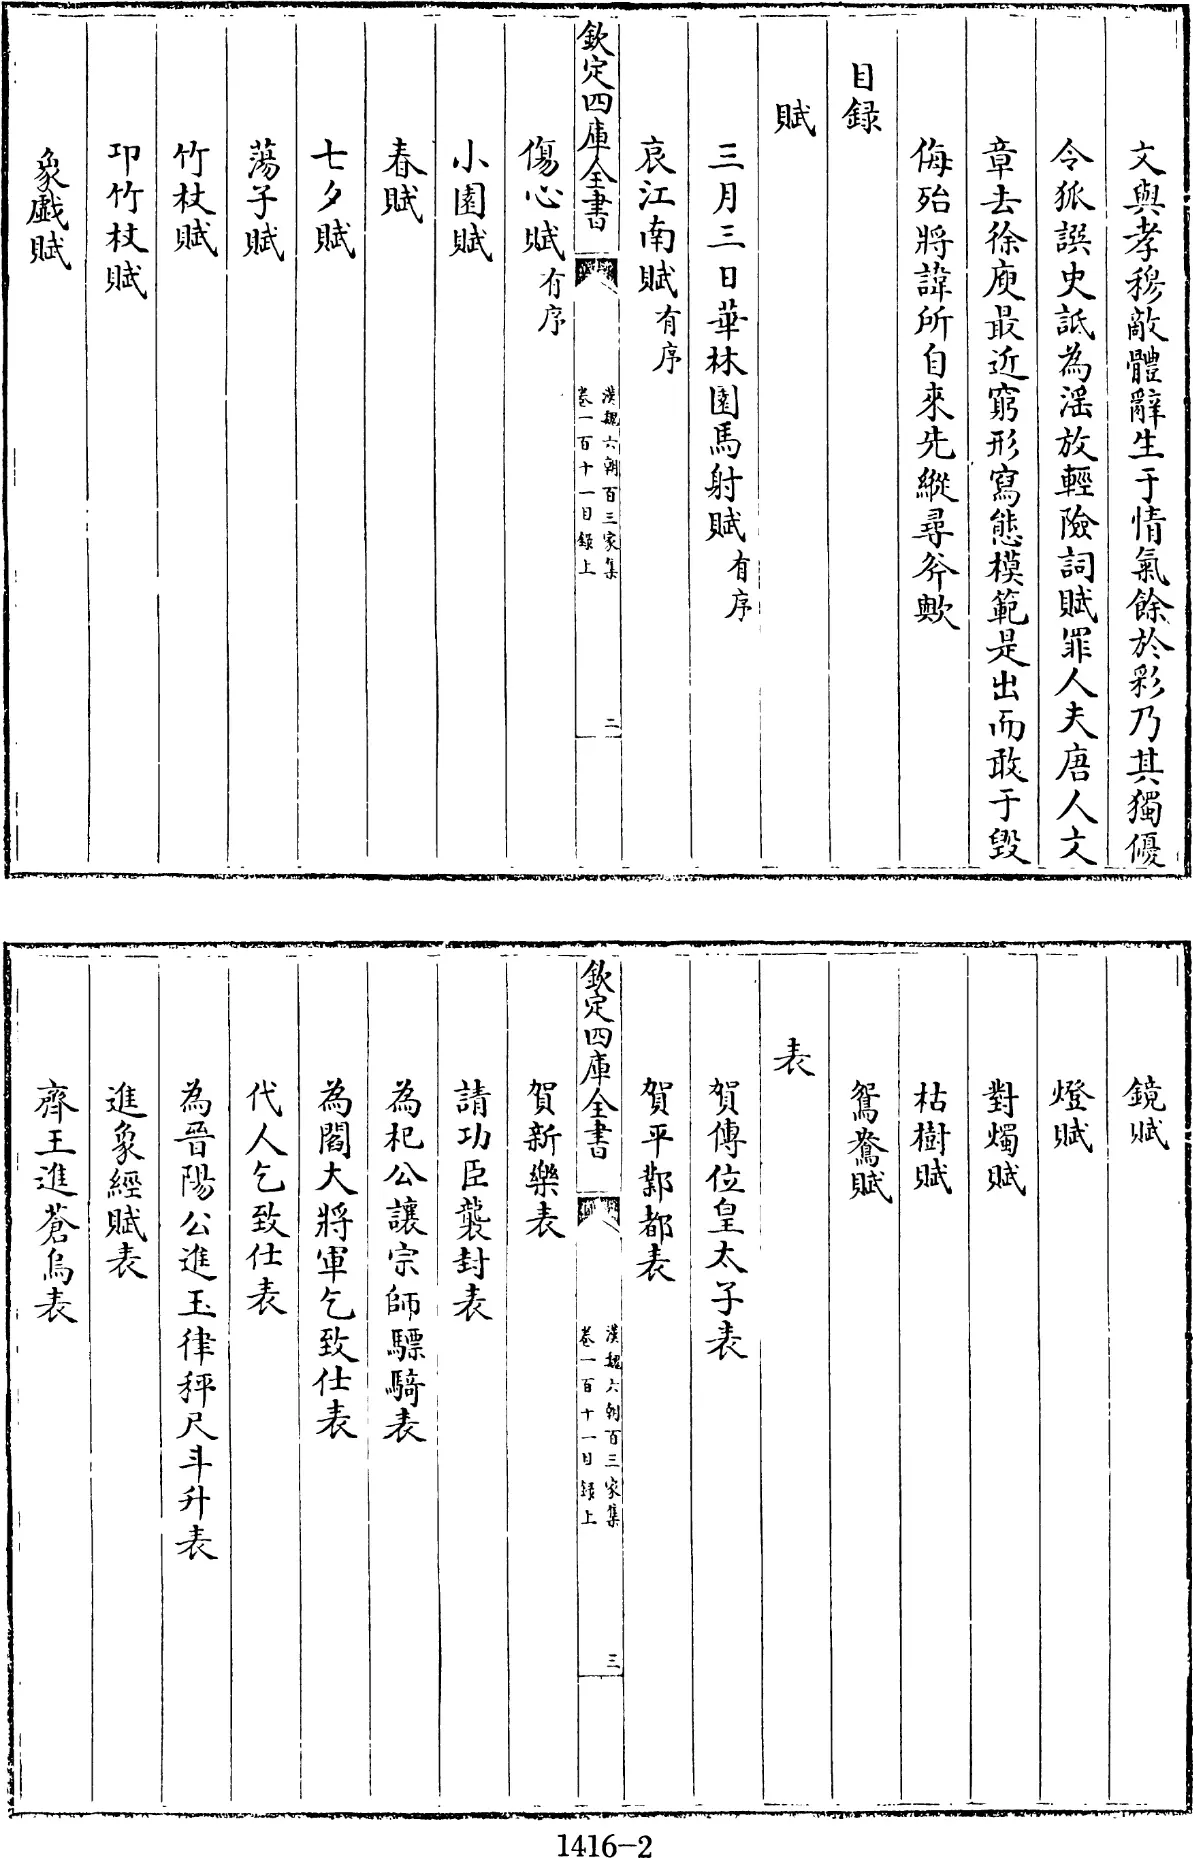 文與孝穆敵體辭生于情氣餘於彩乃其獨優
令狐譔史詆為滛放輕險詞賦罪人夫唐人文
章去徐庾最近窮形寫態模範是出而敢于毀
侮殆將諱所自來先縱尋斧歟
目録
賦
三月三日華林園馬射賦有序
哀江南賦有序
欽定四庫全書
漢魏六朝百三家集
卷一百十一目録上
二
傷心賦有序
小園賦
春賦
七夕賦
蕩子賦
竹杖賦
卭竹杖賦
象戲賦
鏡賦
燈賦
對燭賦
枯樹賦
鴛鴦賦
表
賀傳位皇太子表
賀平鄴都表
欽定四庫全書
漢魏六朝百三家集
卷一百十一目録上
三
賀新樂表
請功臣襲封表
為杞公讓宗師驃騎表
為閻大將軍乞致仕表
代人乞致仕表
為晉陽公進玉律秤尺斗升表
進象經賦表
齊王進蒼烏表
1416-2